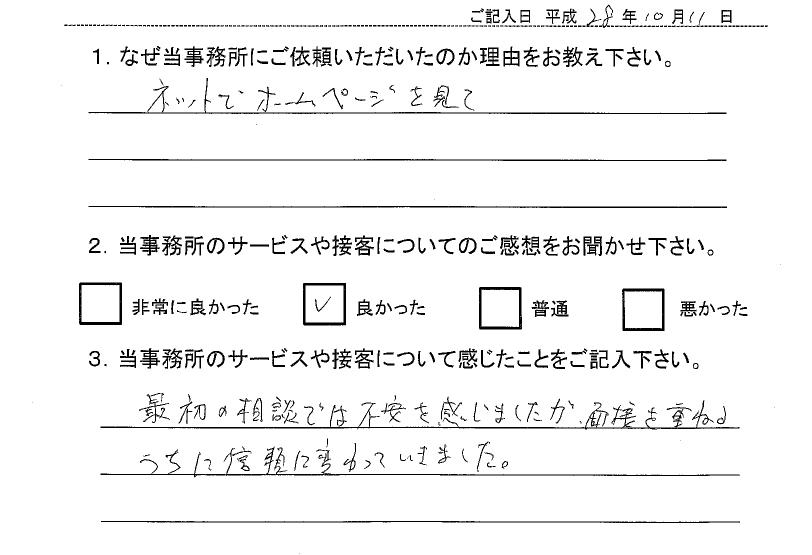 ご記入日 平成 28 年 10 月 11 日
1. なぜ当事務所にご依頼いただいたのか理由をお教え下さい。
ネットでホームページを見て
2. 当事務所のサービスや接客についてのご感想をお聞かせ下さい。
非常に良かった ✓ 良かった 普通 悪かった
3. 当事務所のサービスや接客について感じたことをご記入下さい。
最初の相談では不安を感じましたが、面接を重ねる
うちに信頼に変わっていきました。